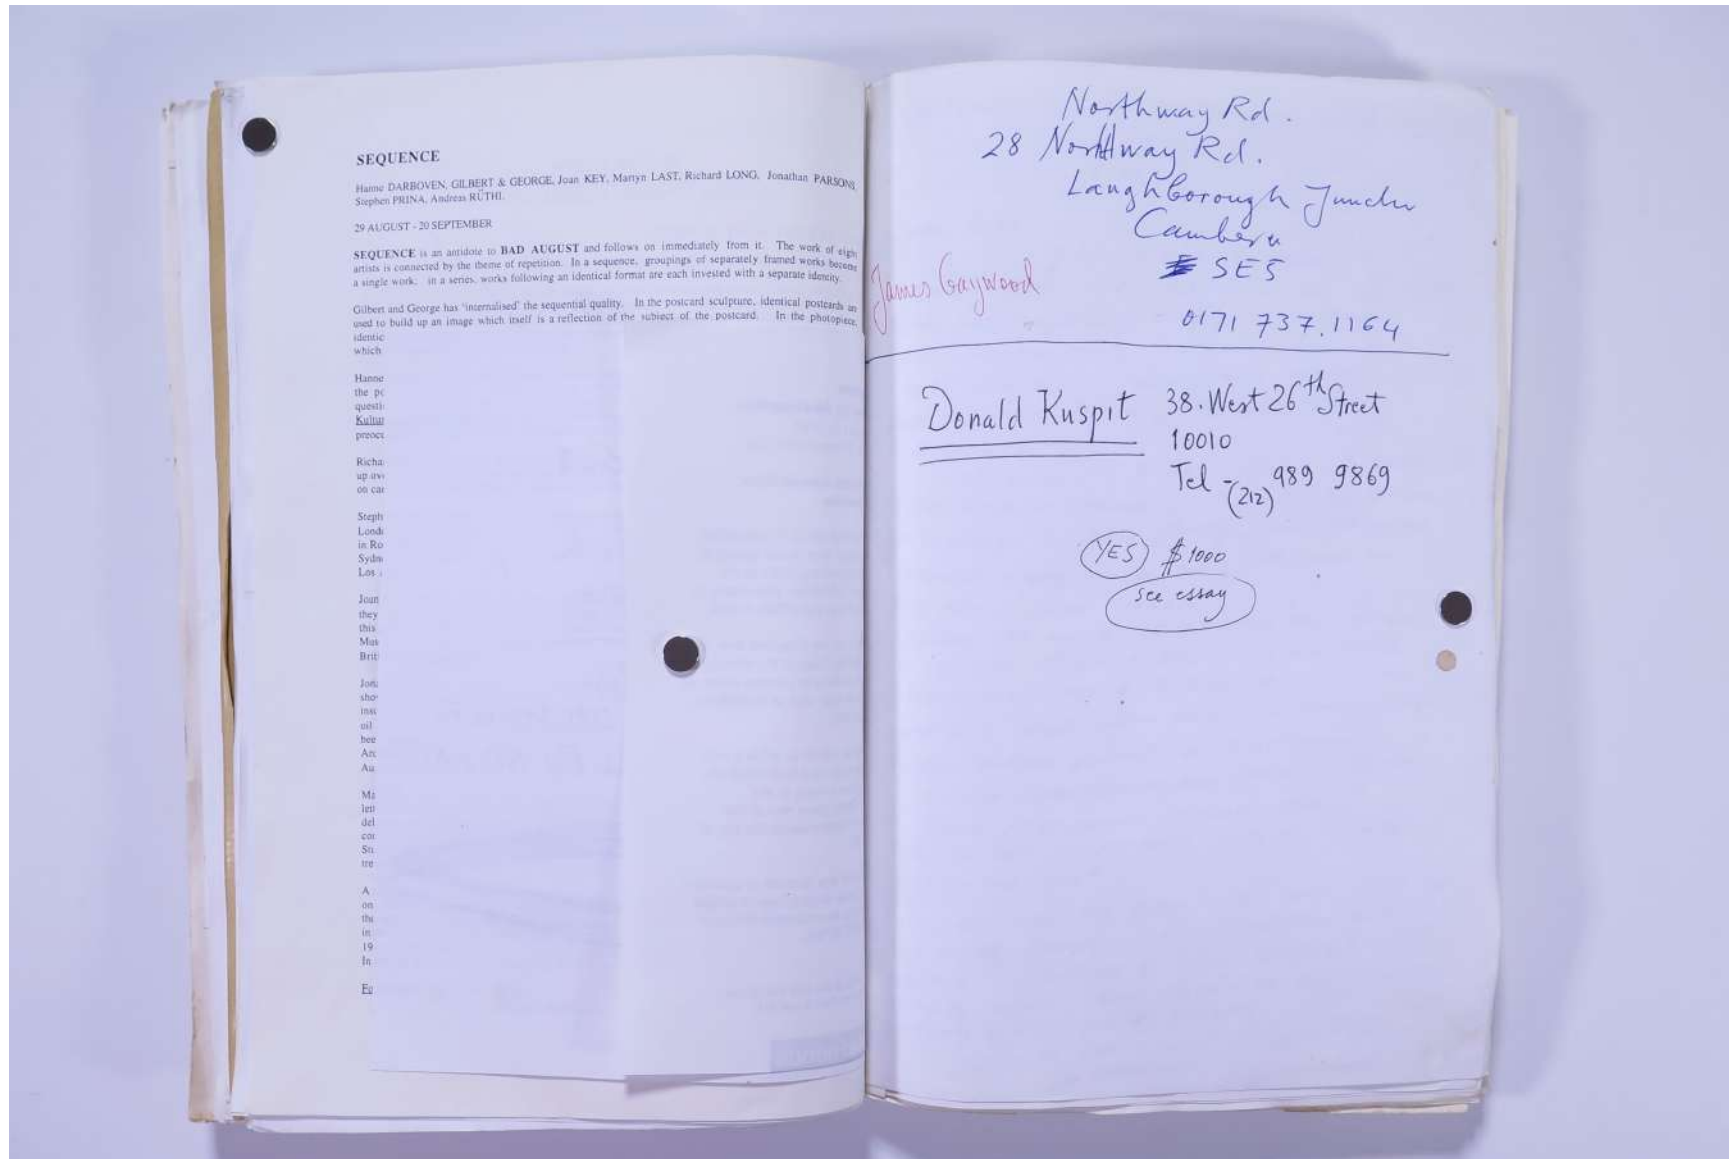 SEQUENCE
Hanne DARBOVEN, GILBERT & GEORGE, Joan KEY, Martyn LAST, Richard LONG, Jonathan PARSONS,
Stephen PRINA, Andreas RÜTHI.
29 AUGUST - 20 SEPTEMBER
SEQUENCE is an antidote to BAD AUGUST and follows on immediately from it. The work of eight
artists is connected by the theme of repetition. In a sequence, groupings of separately framed works become
a single work; in a series, works following an identical format are each invested with a separate identity.
Gilbert and George has 'internalised' the sequential quality. In the postcard sculpture, identical postcards are
used to build up an image which itself is a reflection of the subject of the postcard. In the photopiece,
identic
which
Hanne
the po
questi
Kultur
preocc
Richa
up ove
on car
Steph
Londo
in Ro
Sydn
Los
Joan
they
this
Mus
Brit
Jona
sho
inst
oil
bee
An
Au
Ma
lett
del
con
Stu
tre
A
on
the
in
19
In
Northway Rd.
28 Northway Rd.
Laughborough Junctn
Camberw
SE5
James Gaywood
0171 737.1164
Donald Kuspit 38. West 26th Street
10010
Tel - (212) 989 9869
YES $1000
see essay